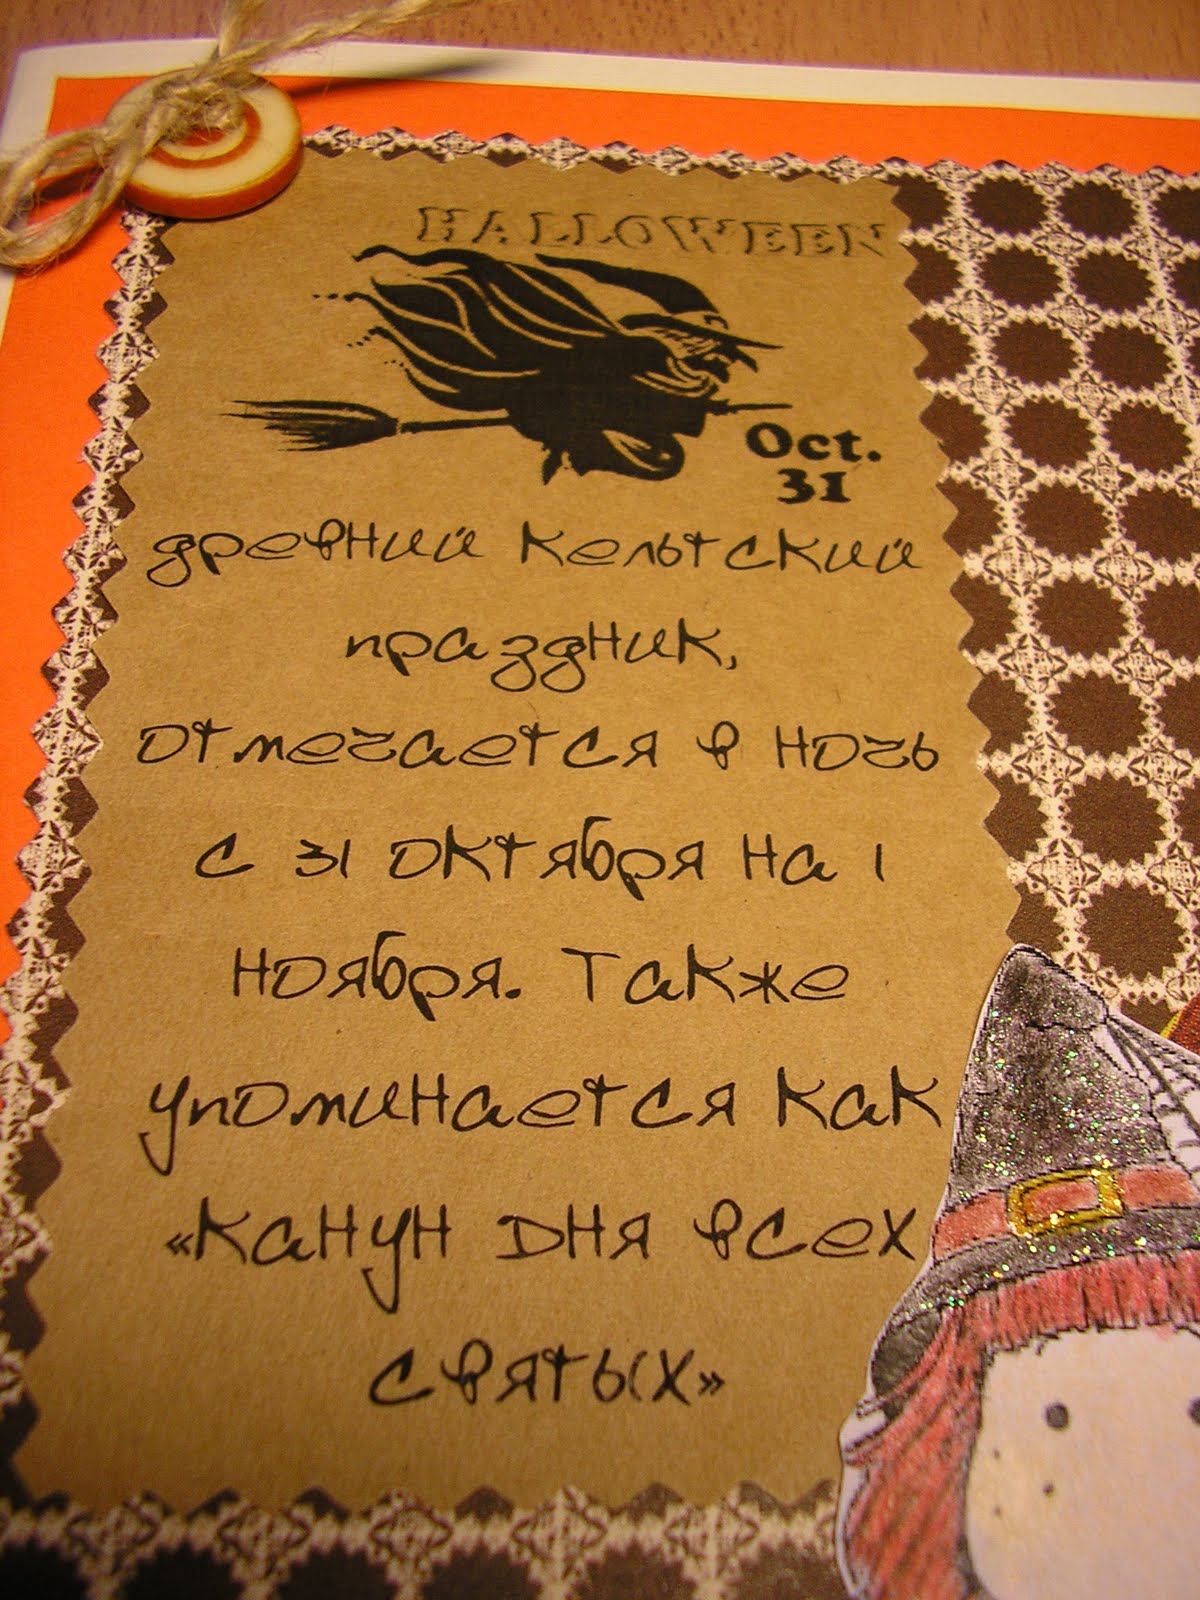 HALLOWEEN
Oct.
31
древний кельтский
праздник,
отмечается в ночь
с 31 октября на 1
ноября. Также
упоминается как
«Канун Дня всех
святых»